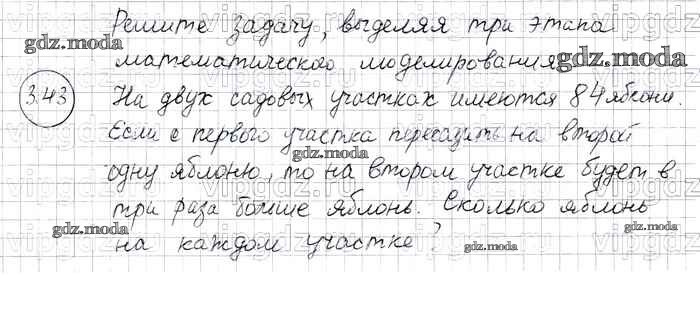 Решите задачу, выделяя три этапа
gdz.moda
математического моделирования
gdz.moda
3.43
На двух садовых участках имеются 84 яблони.
Если с первого участка пересадить на второй
gdz.moda
gdz.moda
одну яблоню, то на втором участке будет в
три раза больше яблонь. Сколько яблонь
gdz.moda
gdz.moda
на каждом участке?
gdz.moda